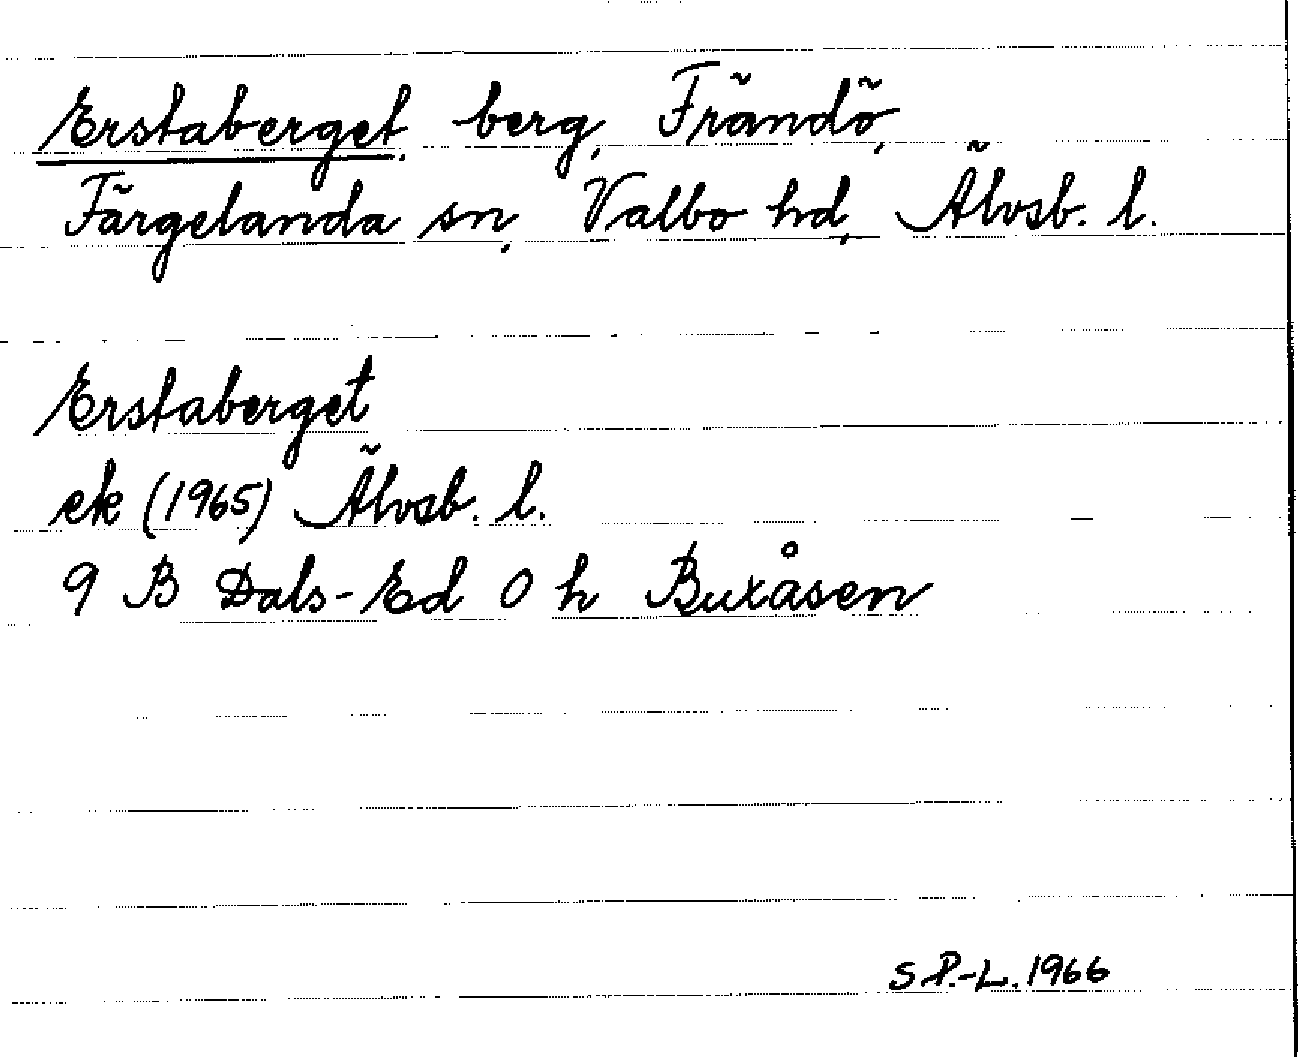 Erstaberget, berg, Frändö,
Färgelanda sn, Valbo hd, Älvsb. l.
Erstaberget
ek (1965) Älvsb. l.
9 B Dals-Ed 0 h Buxåsen
S.P.-L. 1966